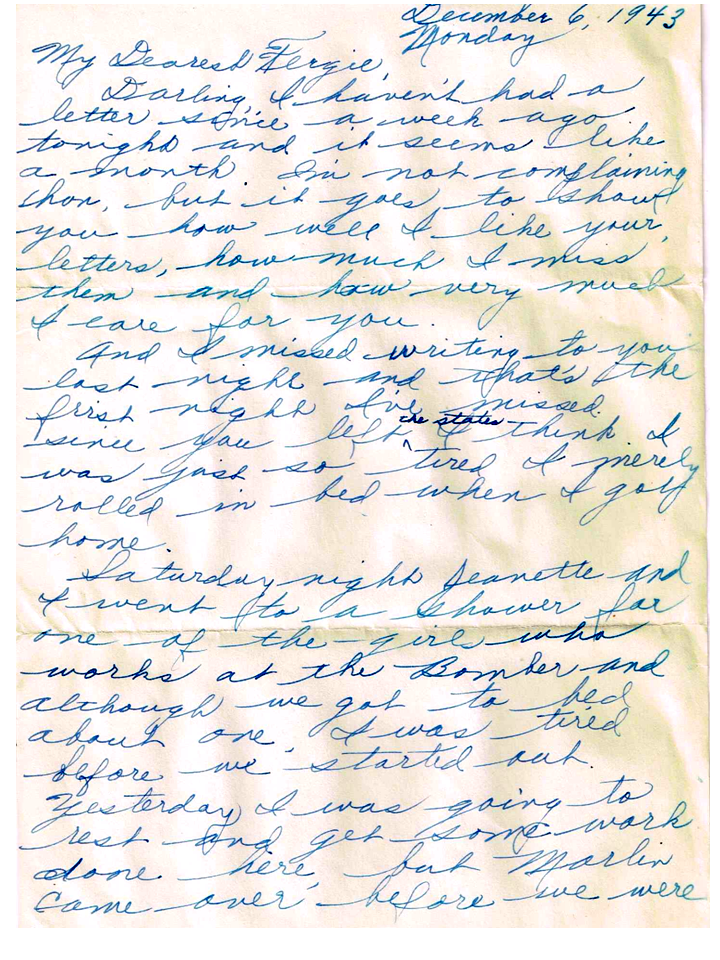 December 6, 1943
Monday
My Dearest Fergie,
Darling, I haven't had a
letter since a week ago
tonight and it seems like
a month. I'm not complaining
hon, but it goes to show
you how well I like your
letters, how much I miss
them and how very much
I care for you.
And I missed writing to you
last night and that's the
first night I've missed
since you left the states. I think I
was just so tired I merely
rolled in bed when I got
home.
Saturday night Jeanette and
I went to a shower for
one of the girls who
works at the Bomber and
although we got to bed
about one, I was tired
before we started out.
Yesterday I was going to
rest and get some work
done here, but Marlin
came over before we were